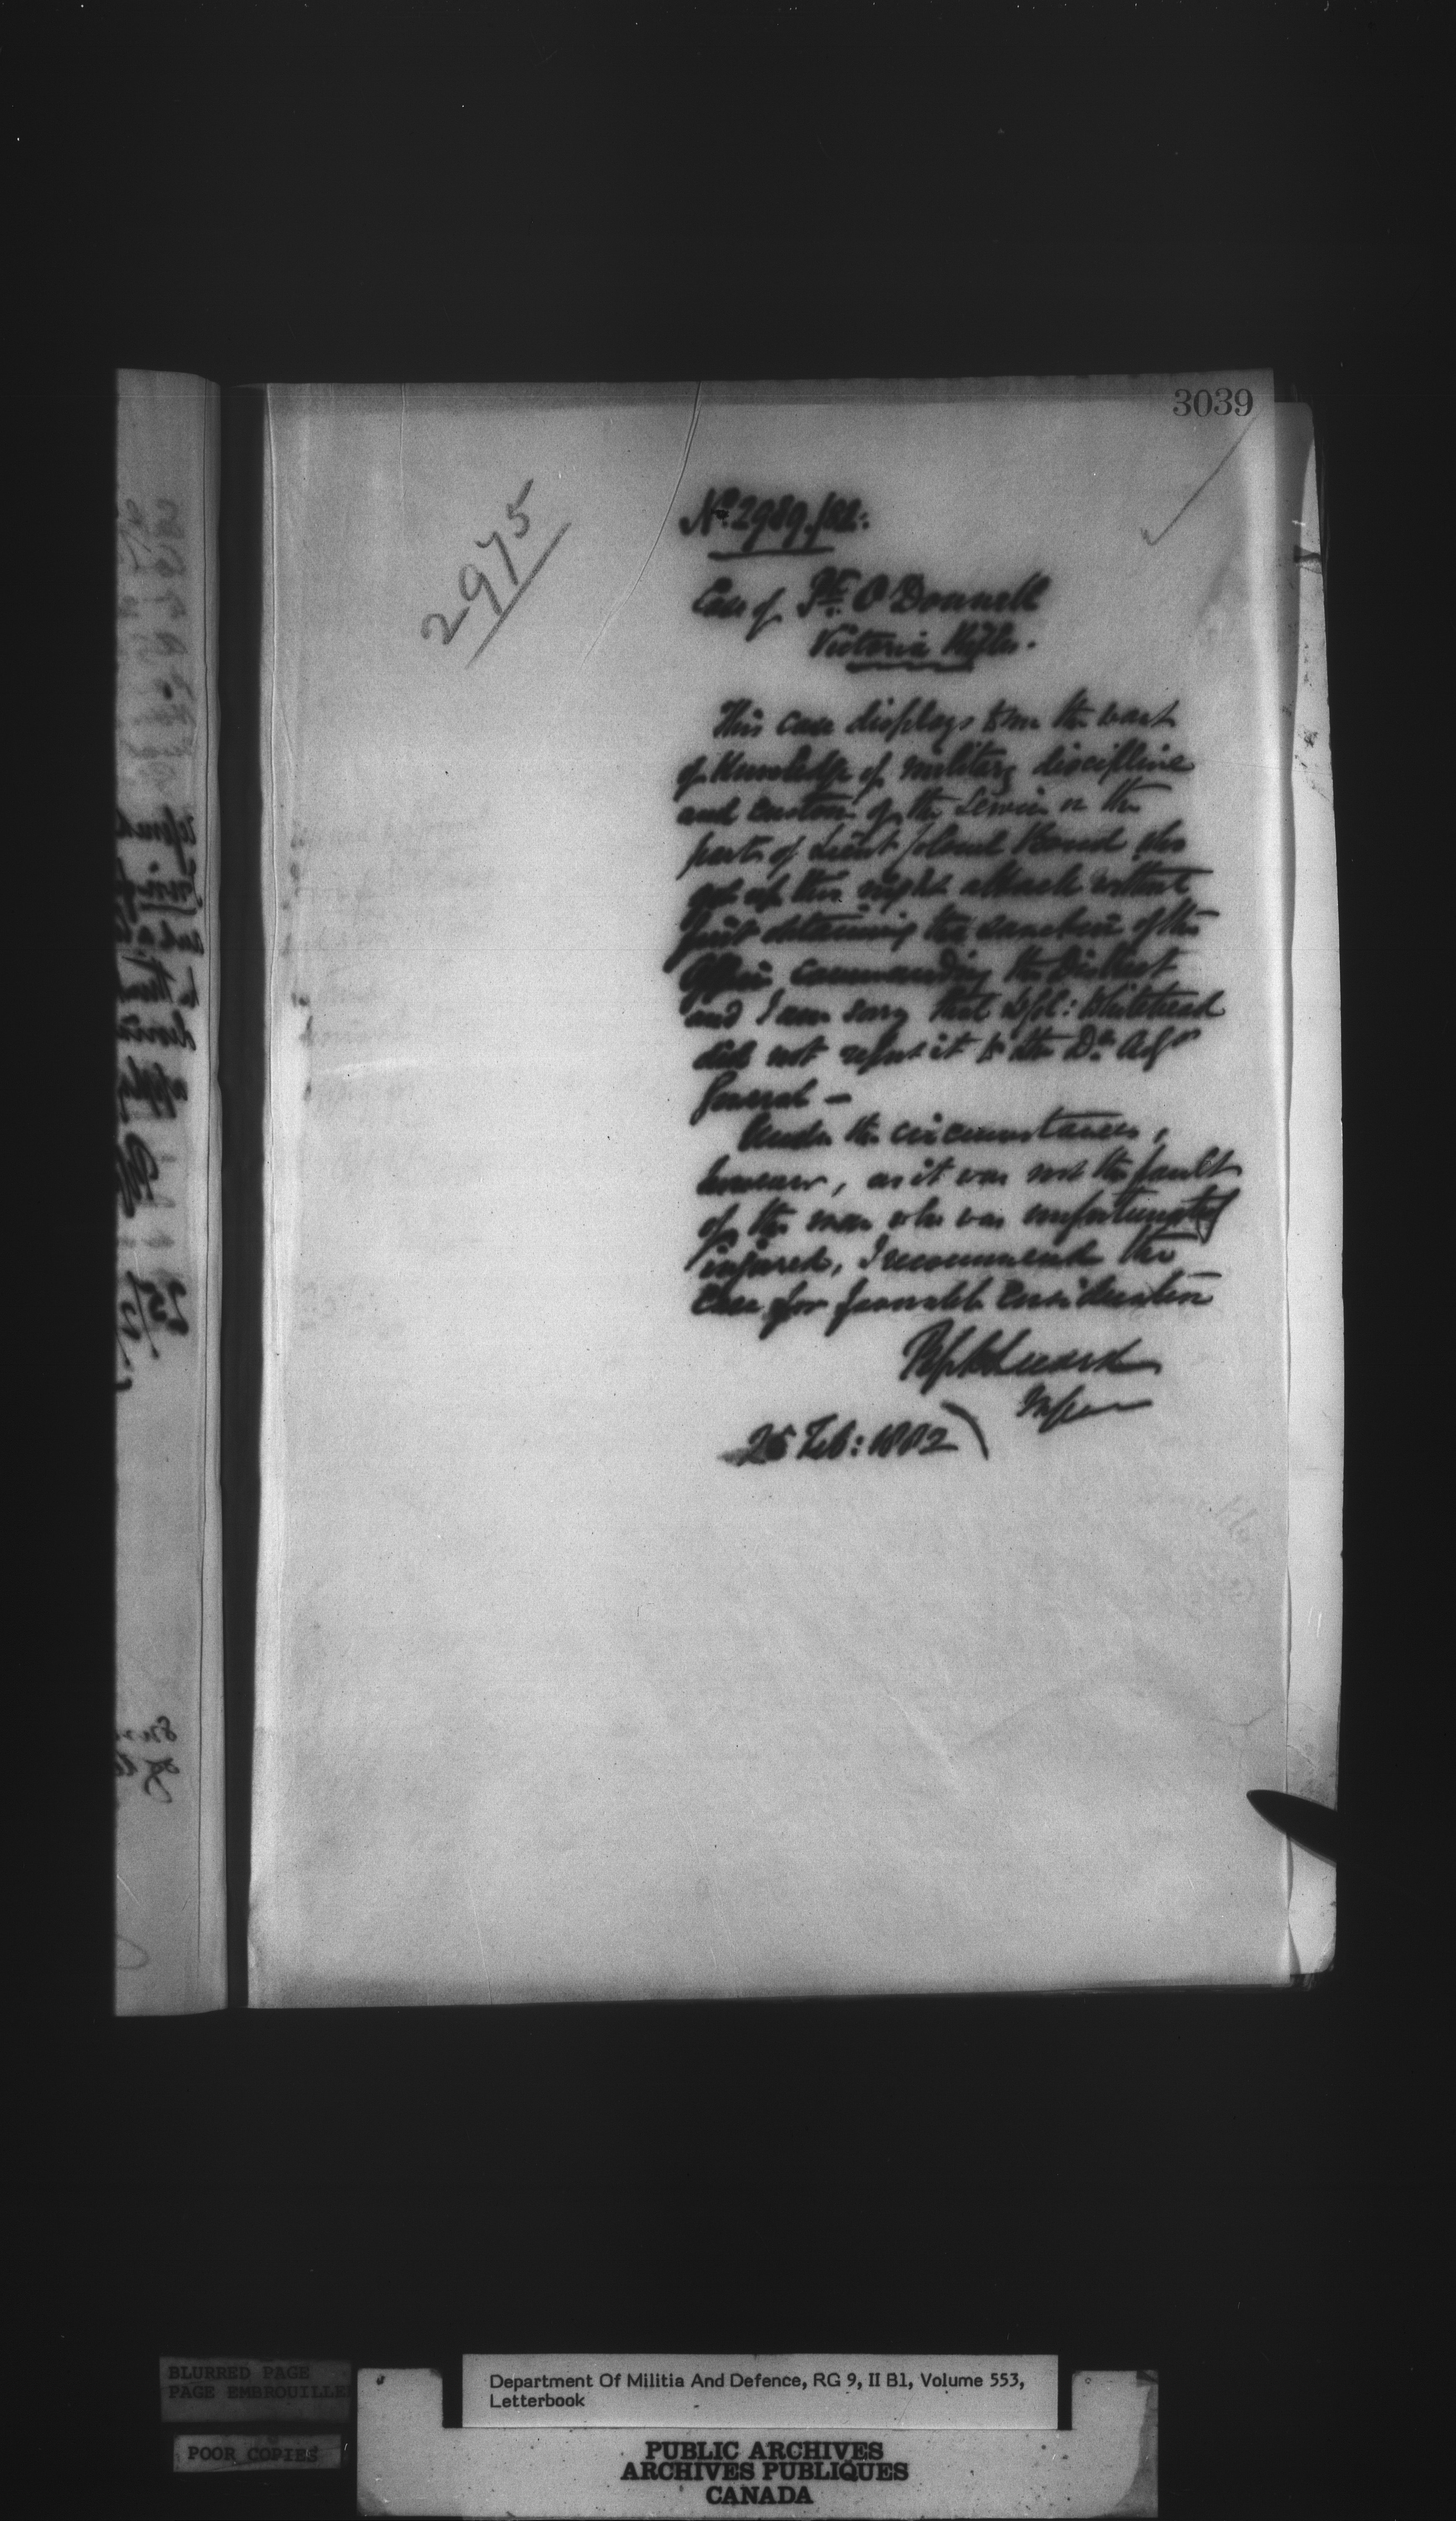 3039
2975
No. 2989./82.
Case of Pte. O'Donnell
Victoria Rifles.
This case displays to me the want
of knowledge of military discipline
and custom of the Service on the
part of Lieut Colonel who
got up this night attack without
first obtaining the sanction of the
Officer commanding the District
and I am sorry that Lt Col: Whitehead
did not report it to the Dy. Adjt
General —
Under the circumstances,
however, as it was not the fault
of the man who was unfortunately
injured, I recommend the
case for favorable consideration
Luard
M Gen
25 Feb: 1882
BLURRED PAGE
PAGE EMBROUILLEE
POOR COPIES
Department Of Militia And Defence, RG 9, II B1, Volume 553,
Letterbook
PUBLIC ARCHIVES
ARCHIVES PUBLIQUES
CANADA